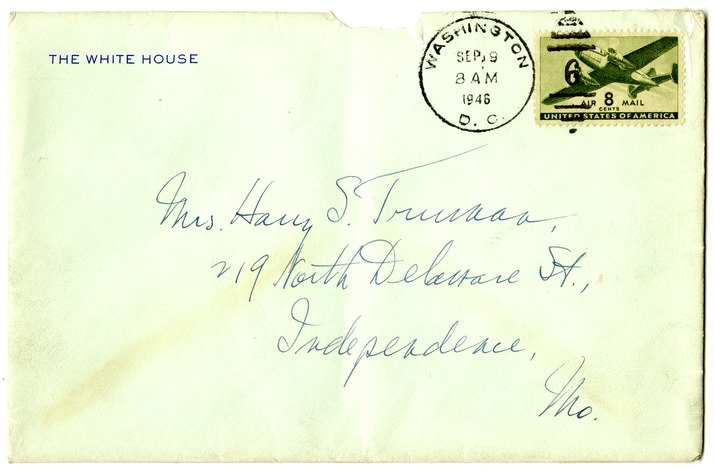 THE WHITE HOUSE
WASHINGTON
SEP 9
8 AM
1946
D. C.
6
AIR 8 MAIL
CENTS
UNITED STATES OF AMERICA
Mrs. Harry S. Truman,
219 North Delaware St.,
Independence,
Mo.